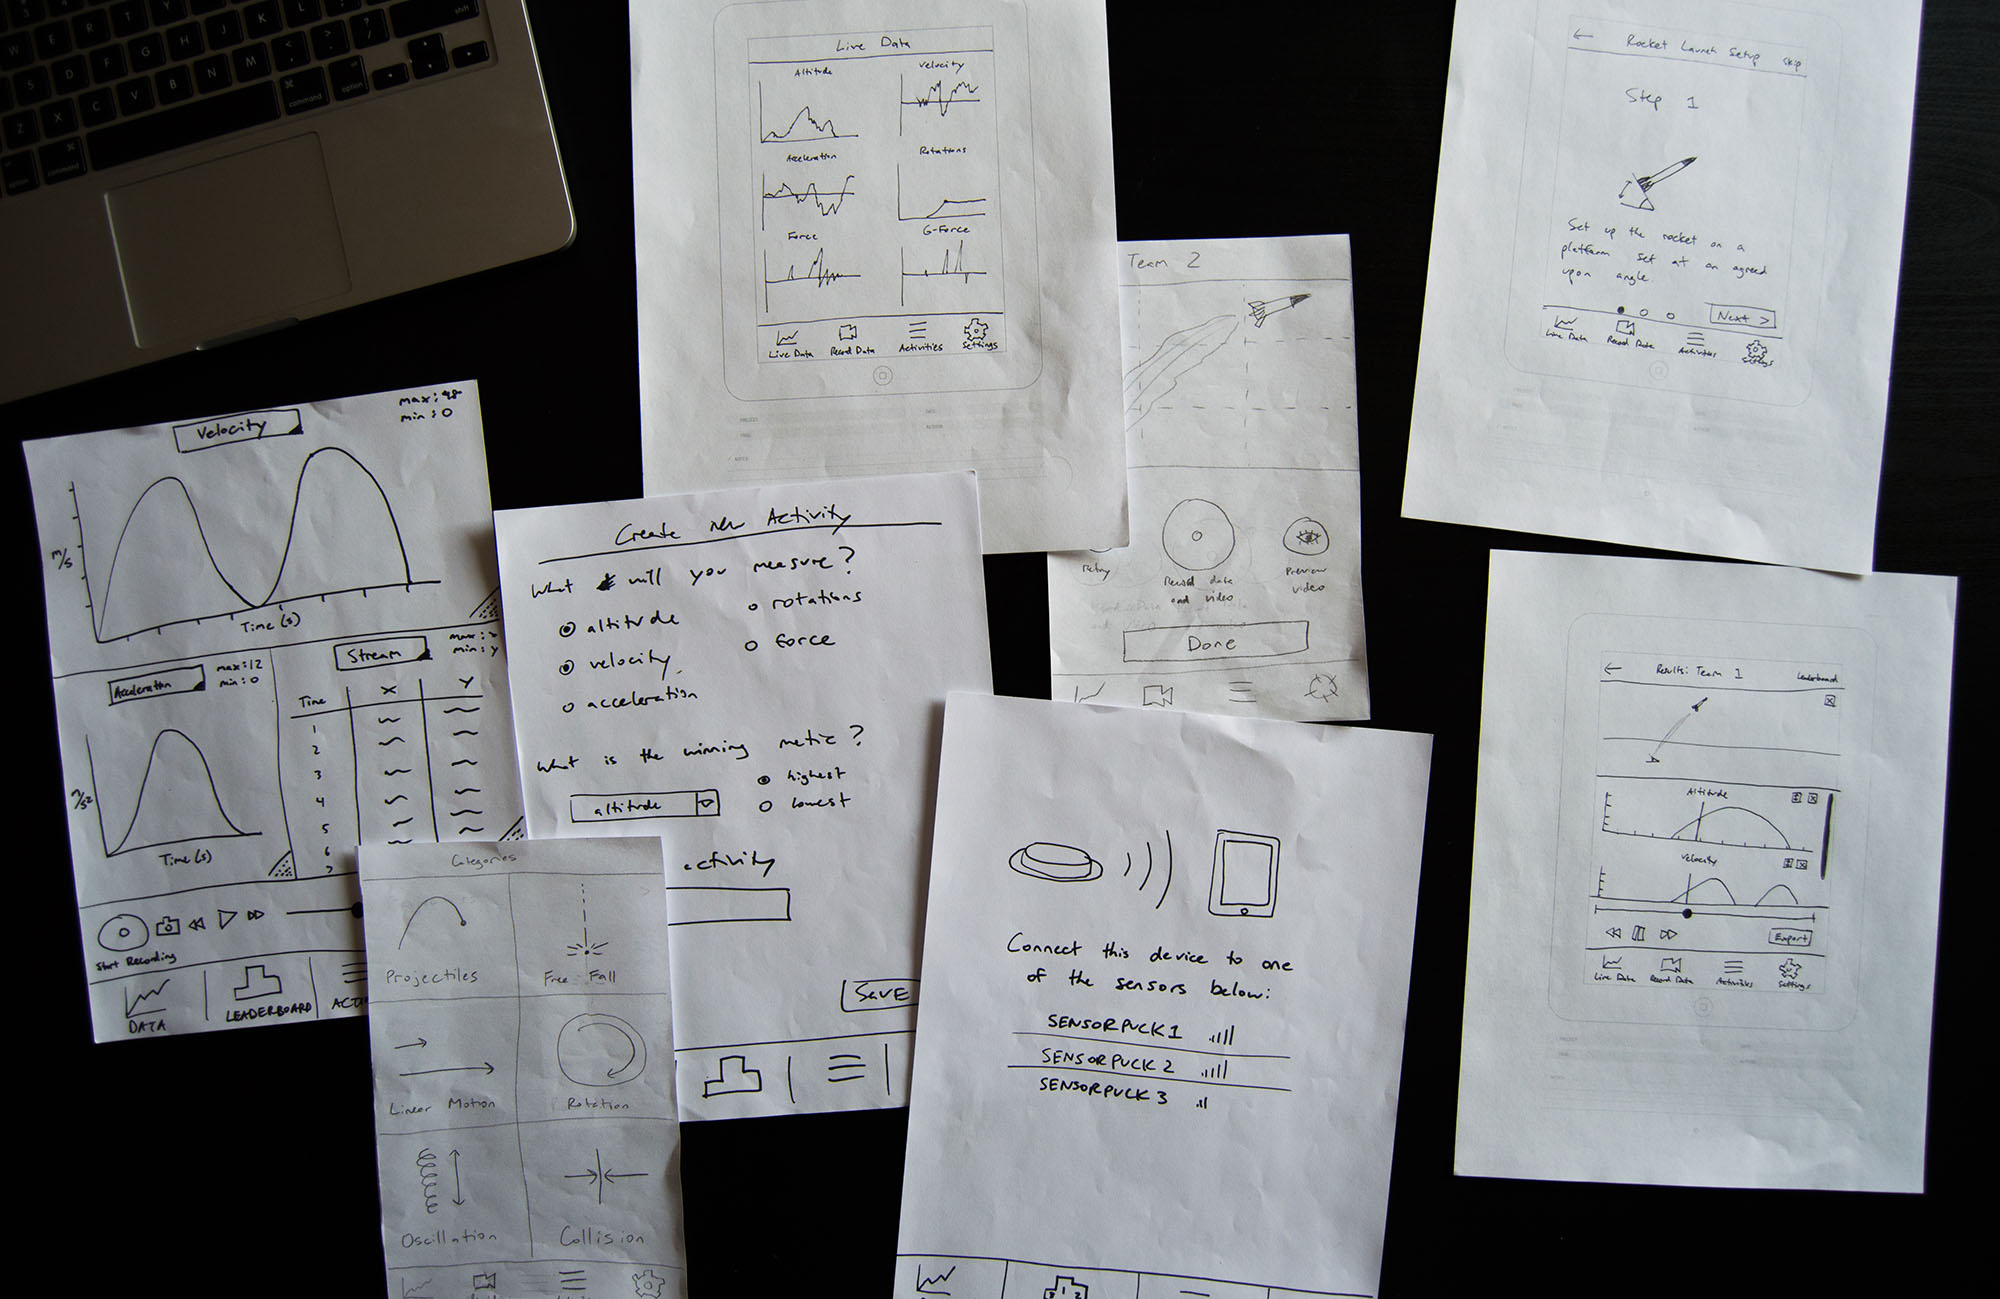 Live Data
Altitude
Velocity
Acceleration
Rotations
Force
G-Force
Live Data
Record Data
Activities
Settings
PROJECT
DATE
NOTES
Rocket Launch Setup
Skip
Step 1
Set up the rocket on a
platform set at an agreed
upon angle.
Next >
Live Data
Record Data
Activities
Settings
Team 2
Retry
Record data
and video
Preview
video
Done
Velocity
max: 98
min: 0
m/s
Time (s)
Acceleration
max: 12
min: 0
m/s2
Time (s)
Stream
min: y
Time
X
Y
1
2
3
4
5
6
7
Start Recording
DATA
LEADERBOARD
Create new Activity
What will you measure?
altitude
velocity
acceleration
rotations
force
What is the winning metric?
altitude
highest
lowest
activity
SAVE
Categories
Projectiles
Free-Fall
Linear Motion
Rotation
Oscillation
Collision
Connect this device to one
of the sensors below:
SENSORPUCK 1
SENSORPUCK 2
SENSORPUCK 3
1 2
Results: Team 1
Leaderboard
Altitude
Velocity
Export
Live Data
Record Data
Activities
Settings
command
option
shift
command
option